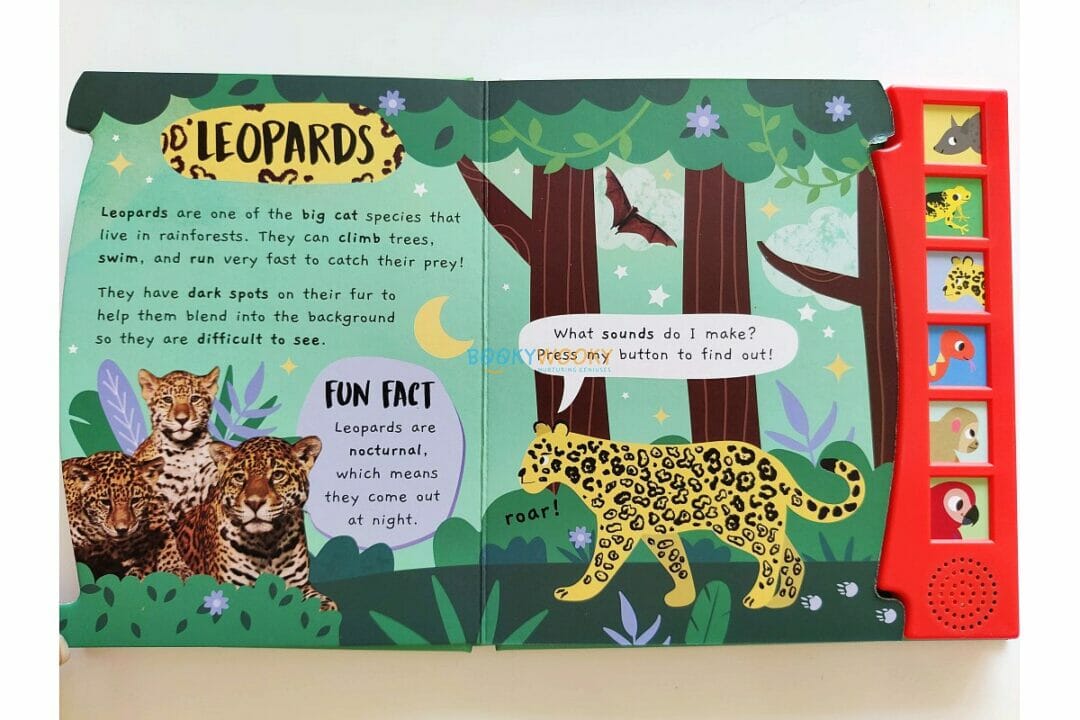 LEOPARDS
Leopards are one of the big cat species that
live in rainforests. They can climb trees,
swim, and run very fast to catch their prey!
They have dark spots on their fur to
help them blend into the background
so they are difficult to see.
FUN FACT
Leopards are
nocturnal,
which means
they come out
at night.
What sounds do I make?
Press my button to find out!
BOOKYWOOKY
NURTURING GENIUSES
roar!